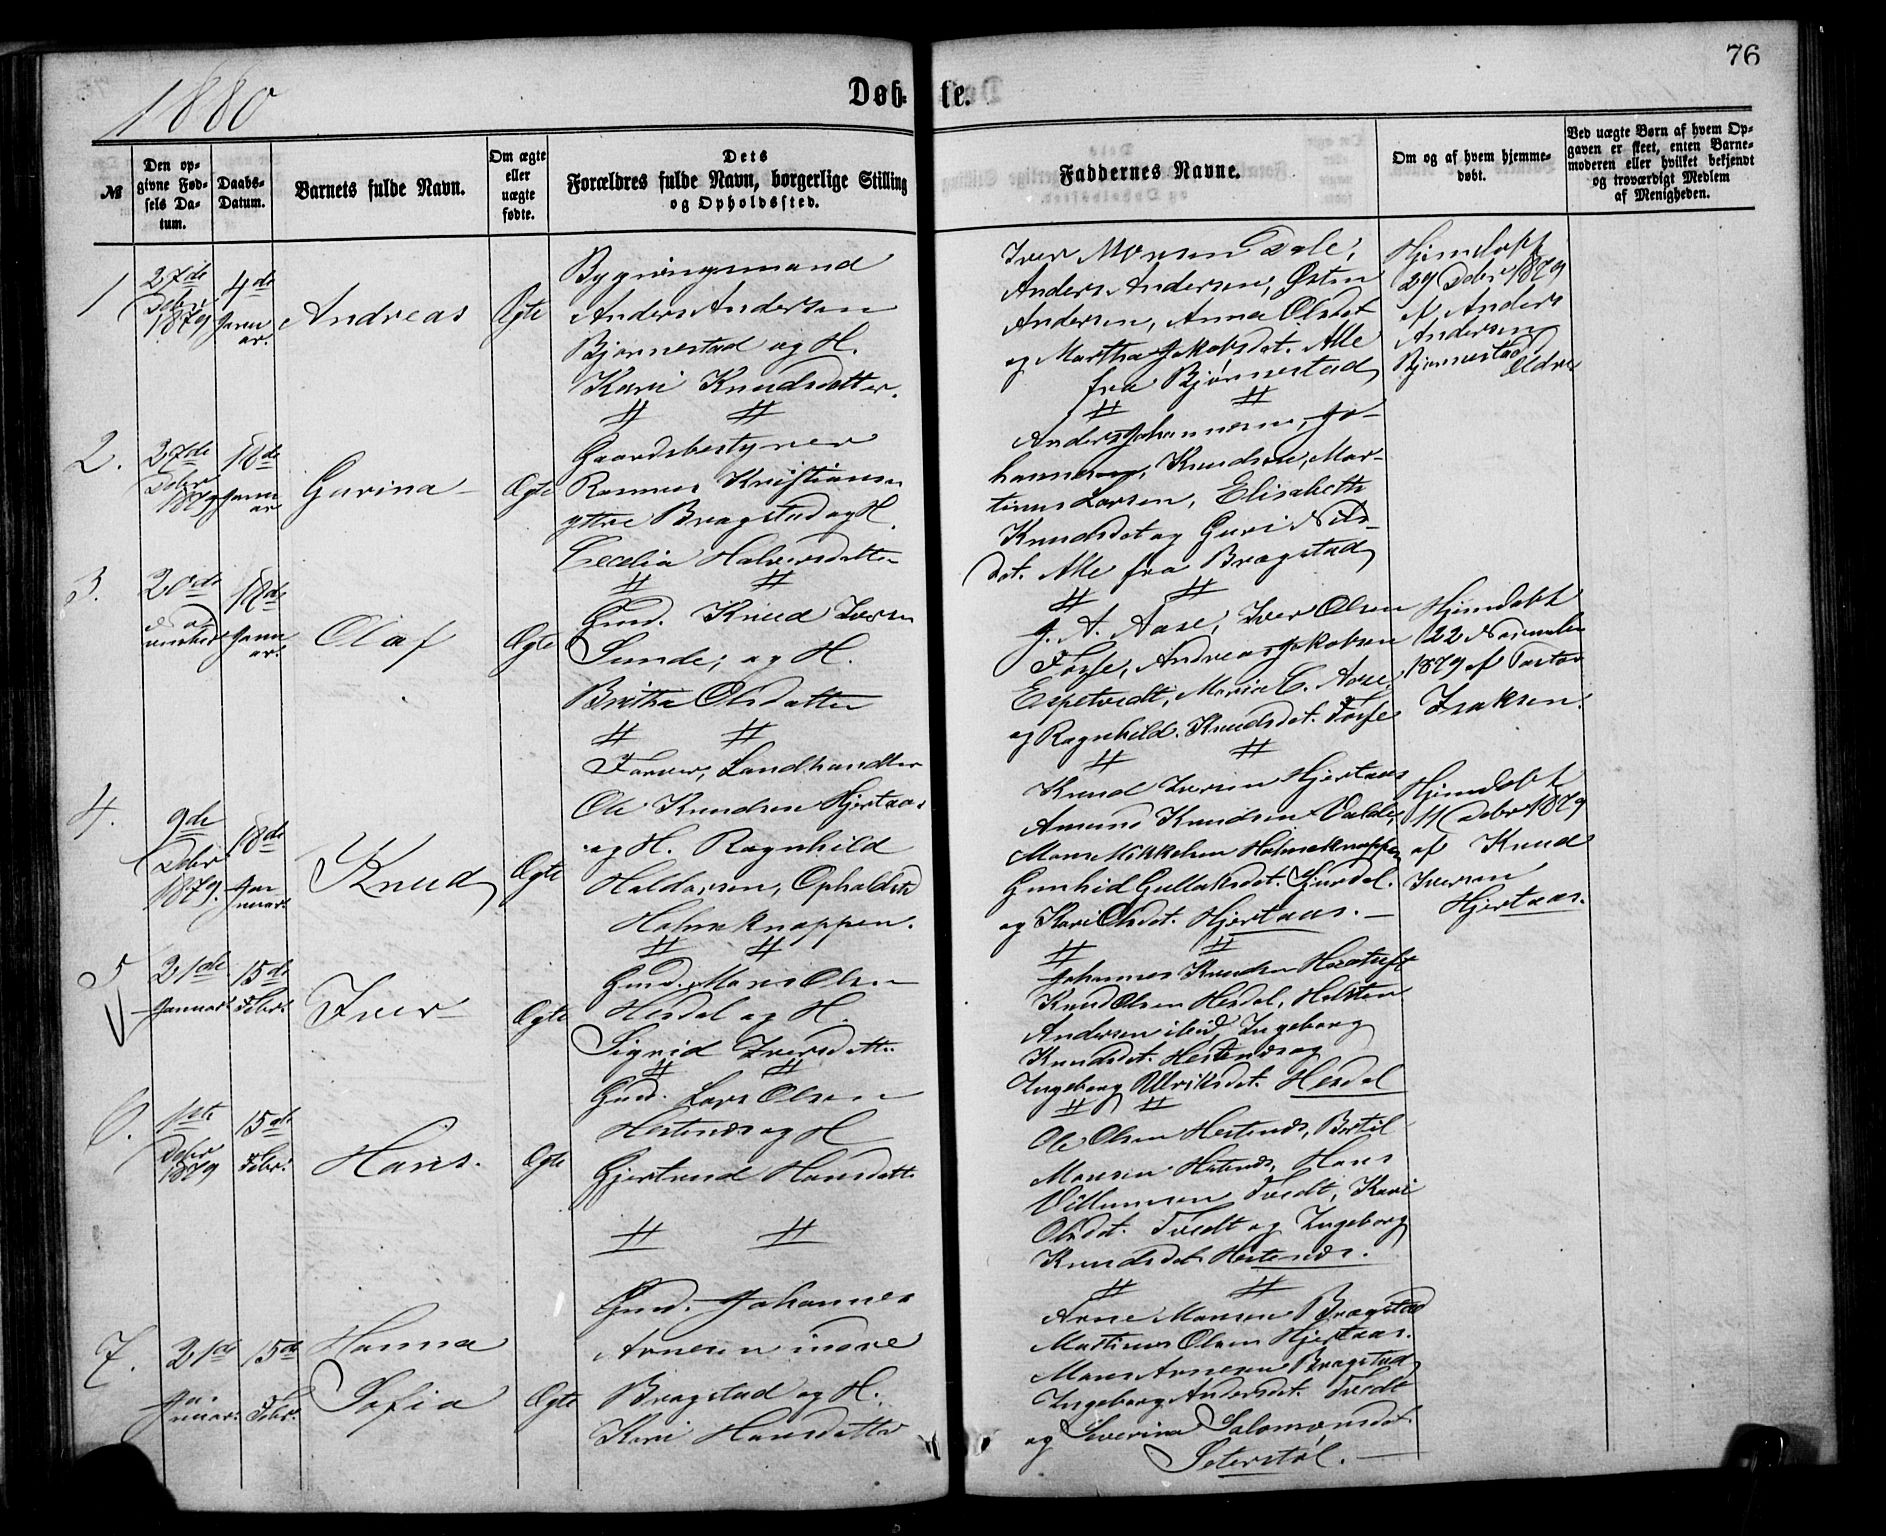 76
1880
Døb- te.
№
Den op-
givne Fød-
sels Da-
tum.
Daabs-
Datum.
Barnets fulde Navn.
Om ægte
eller
uægte
fødte.
Dets
Forældres fulde Navn, borgerlige Stilling
og Opholdssted.
Faddernes Navne.
Om og af hvem hjemme-
døbt.
Ved uægte Børn af hvem Op-
gaven er skeet, enten Barne-
moderen eller hvilket bekjendt
og troværdigt Medlem
af Menigheden.
1
27de
Debr
1879
4de
Janu
ar.
Andreas
Ægte
Bygningsmand
Anders Andersen
Bjørnestad og H.
Kari Knudsdatter.
Iver Monsen Dale,
Anders Andersen, Østen
Andersen, Anna Olsdet
og Martha Jakobsdat. Alle
fra Bjørnestad
Hjemdøpt
29 Debr 1879
af Anders
Andersen
Bjørnestad
Eldre
2.
27de
Debr
1879
18de
Janu
ar
Gurina
Ægte
Gaardsbestyrer
Rasmus Kristiansen
yttre Bragstad og H.
Cecelia Halvorsdatter
Anders Johannesen, Jo-
hannes Knudsen, Mar-
tinus Larsen, Elisabeth
Knudsdet og Guri Nils-
dat. Alle fra Bragstad
3.
20de
18de
Janu
ar.
Olaf
Ægte
Gmd. Knud Iversen
Sunde, og H.
Britha Olsdatter
J. A. Aase, Iver Olsen
Fosse, Andreas Jakobsen
Espetvedt, Maria C. Aase
og Ragnhild Knudsdet. Fosse
Hjemdøbt
22 November
1879 af Pastor
Isaksen.
4.
9de
Debr
1879.
18de
Jan
nuar.
Knud
Ægte
Farver, Landhandler
Ole Knudsen Hjertaas
og H. Ragnhild
Haldorsen, Opholdst
Holmeknappen.
Knud Iversen Hjertaas
Amund Knudsen Valde,
Mons Mikkelsen Holmeknappen
Gunhild Gullaksdat.
og Kari Olsdet. Hjertaas.
Hjemdøbt
11 Debr 1879
af Knud
Iversen
Hjertaas.
5
21de
Januar.
15de
Febr.
Iver
Ægte
Gmd. Mons Olsen
Hesdal og H.
Sigrid Iversdatter
Johannes Knudsen
Knud Olsen Hesdal, Holsten
Andersen ibid, Ingeborg
Knudsdet. Hestenæs og
Ingeborg Ulriksdet. Hesdal
6.
1ste
Debr
1879
15de
Febr.
Hans.
Ægte
Gmd. Lars Olsen
Hestenæs og H
Gjertrud Hansdatter
Ole Olsen Hestenæs, Bertil
Monsen Hestenæs, Hans
Villumsen Tvedt, Kari
Olsdet. Tvedt og Ingeborg
Knudsdet Hestenæs.
7.
21de
Ja-
nuar.
15de
Febr.
Hanna
Sofia
Ægte
Gmd. Johannes
Arnesen indre
Bragstad og H.
Kari Hansdatter
Arne Monsen Bragstad
Martinus Olsen Hjertaas.
Mons Arnesen Bragstad
Ingeborg Andersdet. Tvedt
og Severina Salomonsdet.
Seterstøl.